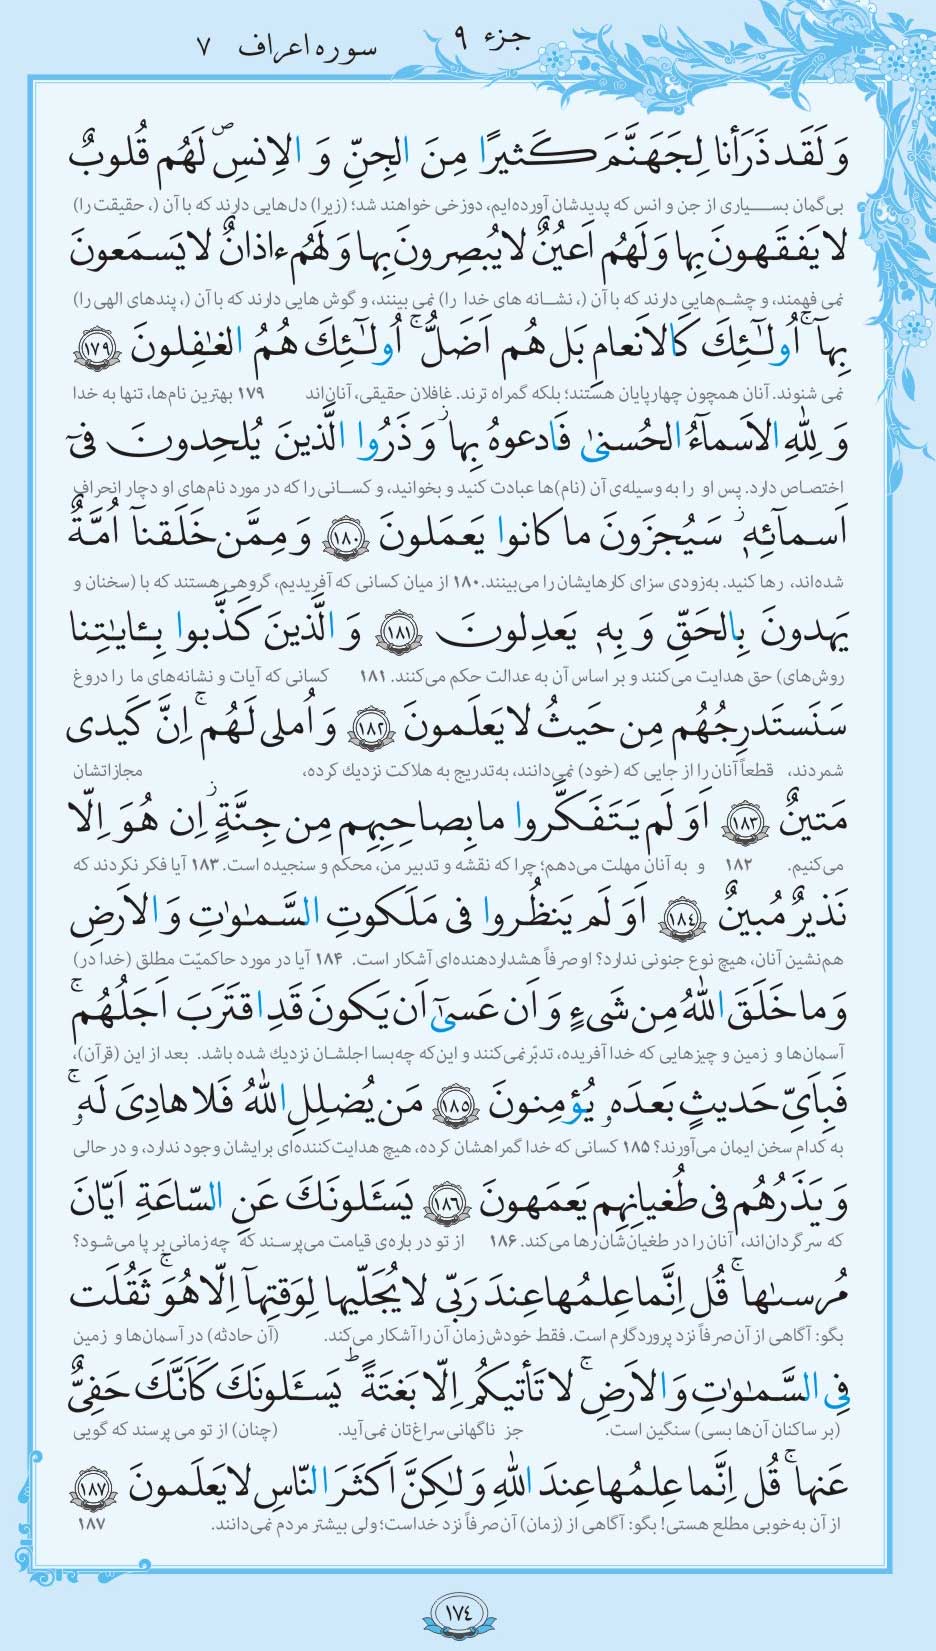 جزء ۹
سوره اعراف ۷
وَ لَقَد ذَرَأنا لِجَهَنَّمَ كَثيرًا مِنَ الجِنِّ وَ الاِنسِ ۖ لَهُم قُلوبٌ
بی‌گمان بسیاری از جن و انس که پدیدشان آورده‌ایم، دوزخی خواهند شد؛ (زیرا) دل‌هایی دارند که با آن (، حقیقت را)
لا يَفقَهونَ بِها وَ لَهُم اَعيُنٌ لا يُبصِرونَ بِها وَ لَهُم ءاذانٌ لا يَسمَعونَ
نمی فهمند، و چشم‌هایی دارند که با آن (، نشانه های خدا را) نمی بینند، و گوش هایی دارند که با آن (، پندهای الهی را)
بِهآ ۚ اُولٰٓئِكَ كَالاَنعامِ بَل هُم اَضَلُّ ۚ اُولٰٓئِكَ هُمُ الغٰفِلونَ ﴿١٧٩﴾
نمی شنوند. آنان همچون چهارپایان هستند؛ بلکه گمراه ترند. غافلان حقیقی، آنان‌اند ۱۷۹ بهترین نام‌ها، تنها به خدا
وَ لِلّٰهِ الاَسمآءُ الحُسنىٰ فَادعوهُ بِها ۖ وَ ذَرُوا الَّذينَ يُلحِدونَ فىٓ
اختصاص دارد. پس او را به وسیله‌ی آن (نام)ها عبادت کنید و بخوانید، و کسانی را که در مورد نام‌های او دچار انحراف
اَسمآئِهٖ ۚ سَيُجزَونَ ما كانوا يَعمَلونَ ﴿١٨٠﴾ وَ مِمَّن خَلَقنآ اُمَّةٌ
شده‌اند، رها کنید. به‌زودی سزای کارهایشان را می‌بینند. ۱۸۰ از میان کسانی که آفریدیم، گروهی هستند که با (سخنان و
يَهدونَ بِالحَقِّ وَ بِهٖ يَعدِلونَ ﴿١٨١﴾ وَ الَّذينَ كَذَّبوا بِـٔايٰتِنا
روش‌های) حق هدایت می‌کنند و بر اساس آن به عدالت حکم می‌کنند. ۱۸۱ کسانی که آیات و نشانه‌های ما را دروغ
سَنَستَدرِجُهُم مِن حَيثُ لا يَعلَمونَ ﴿١٨٢﴾ وَ اُملى لَهُم ۚ اِنَّ كَيدى
شمردند، قطعاً آنان را از جایی که (خود) نمی‌دانند، به‌تدریج به هلاکت نزدیك کرده، مجازاتشان
مَتينٌ ﴿١٨٣﴾ اَوَ لَم يَتَفَكَّروا ما بِصاحِبِهِم مِن جِنَّةٍ ۚ اِن هُوَ اِلّا
می‌کنیم. ۱۸۲ و به آنان مهلت می‌دهم؛ چرا که نقشه و تدبیر من، محکم و سنجیده است. ۱۸۳ آیا فکر نکردند که
نَذيرٌ مُبينٌ ﴿١٨٤﴾ اَوَ لَم يَنظُروا فى مَلَكوتِ السَّمٰوٰتِ وَ الاَرضِ
هم‌نشین آنان، هیچ نوع جنونی ندارد؟ او صرفاً هشداردهنده‌ای آشکار است. ۱۸۴ آیا در مورد حاکمیّت مطلق (خدا در)
وَ ما خَلَقَ اللّٰهُ مِن شَىءٍ وَ اَن عَسىٰٓ اَن يَكونَ قَدِ اقتَرَبَ اَجَلُهُم ۚ
آسمان‌ها و زمین و چیزهایی که خدا آفریده، تدبّر نمی‌کنند و این‌که چه‌بسا اجلشان نزدیك شده باشد. بعد از این (قرآن)،
فَبِاَىِّ حَديثٍ بَعدَهٗ يُؤمِنونَ ﴿١٨٥﴾ مَن يُضلِلِ اللّٰهُ فَلا هادِىَ لَهٗ ۚ
به کدام سخن ایمان می‌آورند؟ ۱۸۵ کسانی که خدا گمراهشان کرده، هیچ هدایت‌کننده‌ای برایشان وجود ندارد، و در حالی
وَ يَذَرُهُم فى طُغيانِهِم يَعمَهونَ ﴿١٨٦﴾ يَسـَٔلونَكَ عَنِ السّاعَةِ اَيّانَ
که سرگردان‌اند، آنان را در طغیان‌شان رها می‌کند. ۱۸۶ از تو در باره‌ی قیامت می‌پرسند که چه زمانی بر پا می‌شود؟
مُرسىٰها ۚ قُل اِنَّما عِلمُها عِندَ رَبّى لا يُجَلّيها لِوَقتِهآ اِلّا هُوَ ۚ ثَقُلَت
بگو: آگاهی از آن صرفاً نزد پروردگارم است. فقط خودش زمان آن را آشکار می‌کند. (آن حادثه) در آسمان‌ها و زمین
فِى السَّمٰوٰتِ وَ الاَرضِ ۚ لا تَأتيكُم اِلّا بَغتَةً ؕ يَسـَٔلونَكَ كَاَنَّكَ حَفِىٌّ
(بر ساکنان آن‌ها بسی) سنگین است. جز ناگهانی سراغ‌تان نمی‌آید. (چنان) از تو می پرسند که گویی
عَنها ۚ قُل اِنَّما عِلمُها عِندَ اللّٰهِ وَ لٰكِنَّ اَكثَرَ النّاسِ لا يَعلَمونَ ﴿١٨٧﴾
از آن به‌خوبی مطلع هستی! بگو: آگاهی از (زمان) آن صرفاً نزد خداست؛ ولی بیشتر مردم نمی‌دانند. ۱۸۷
١٧٤